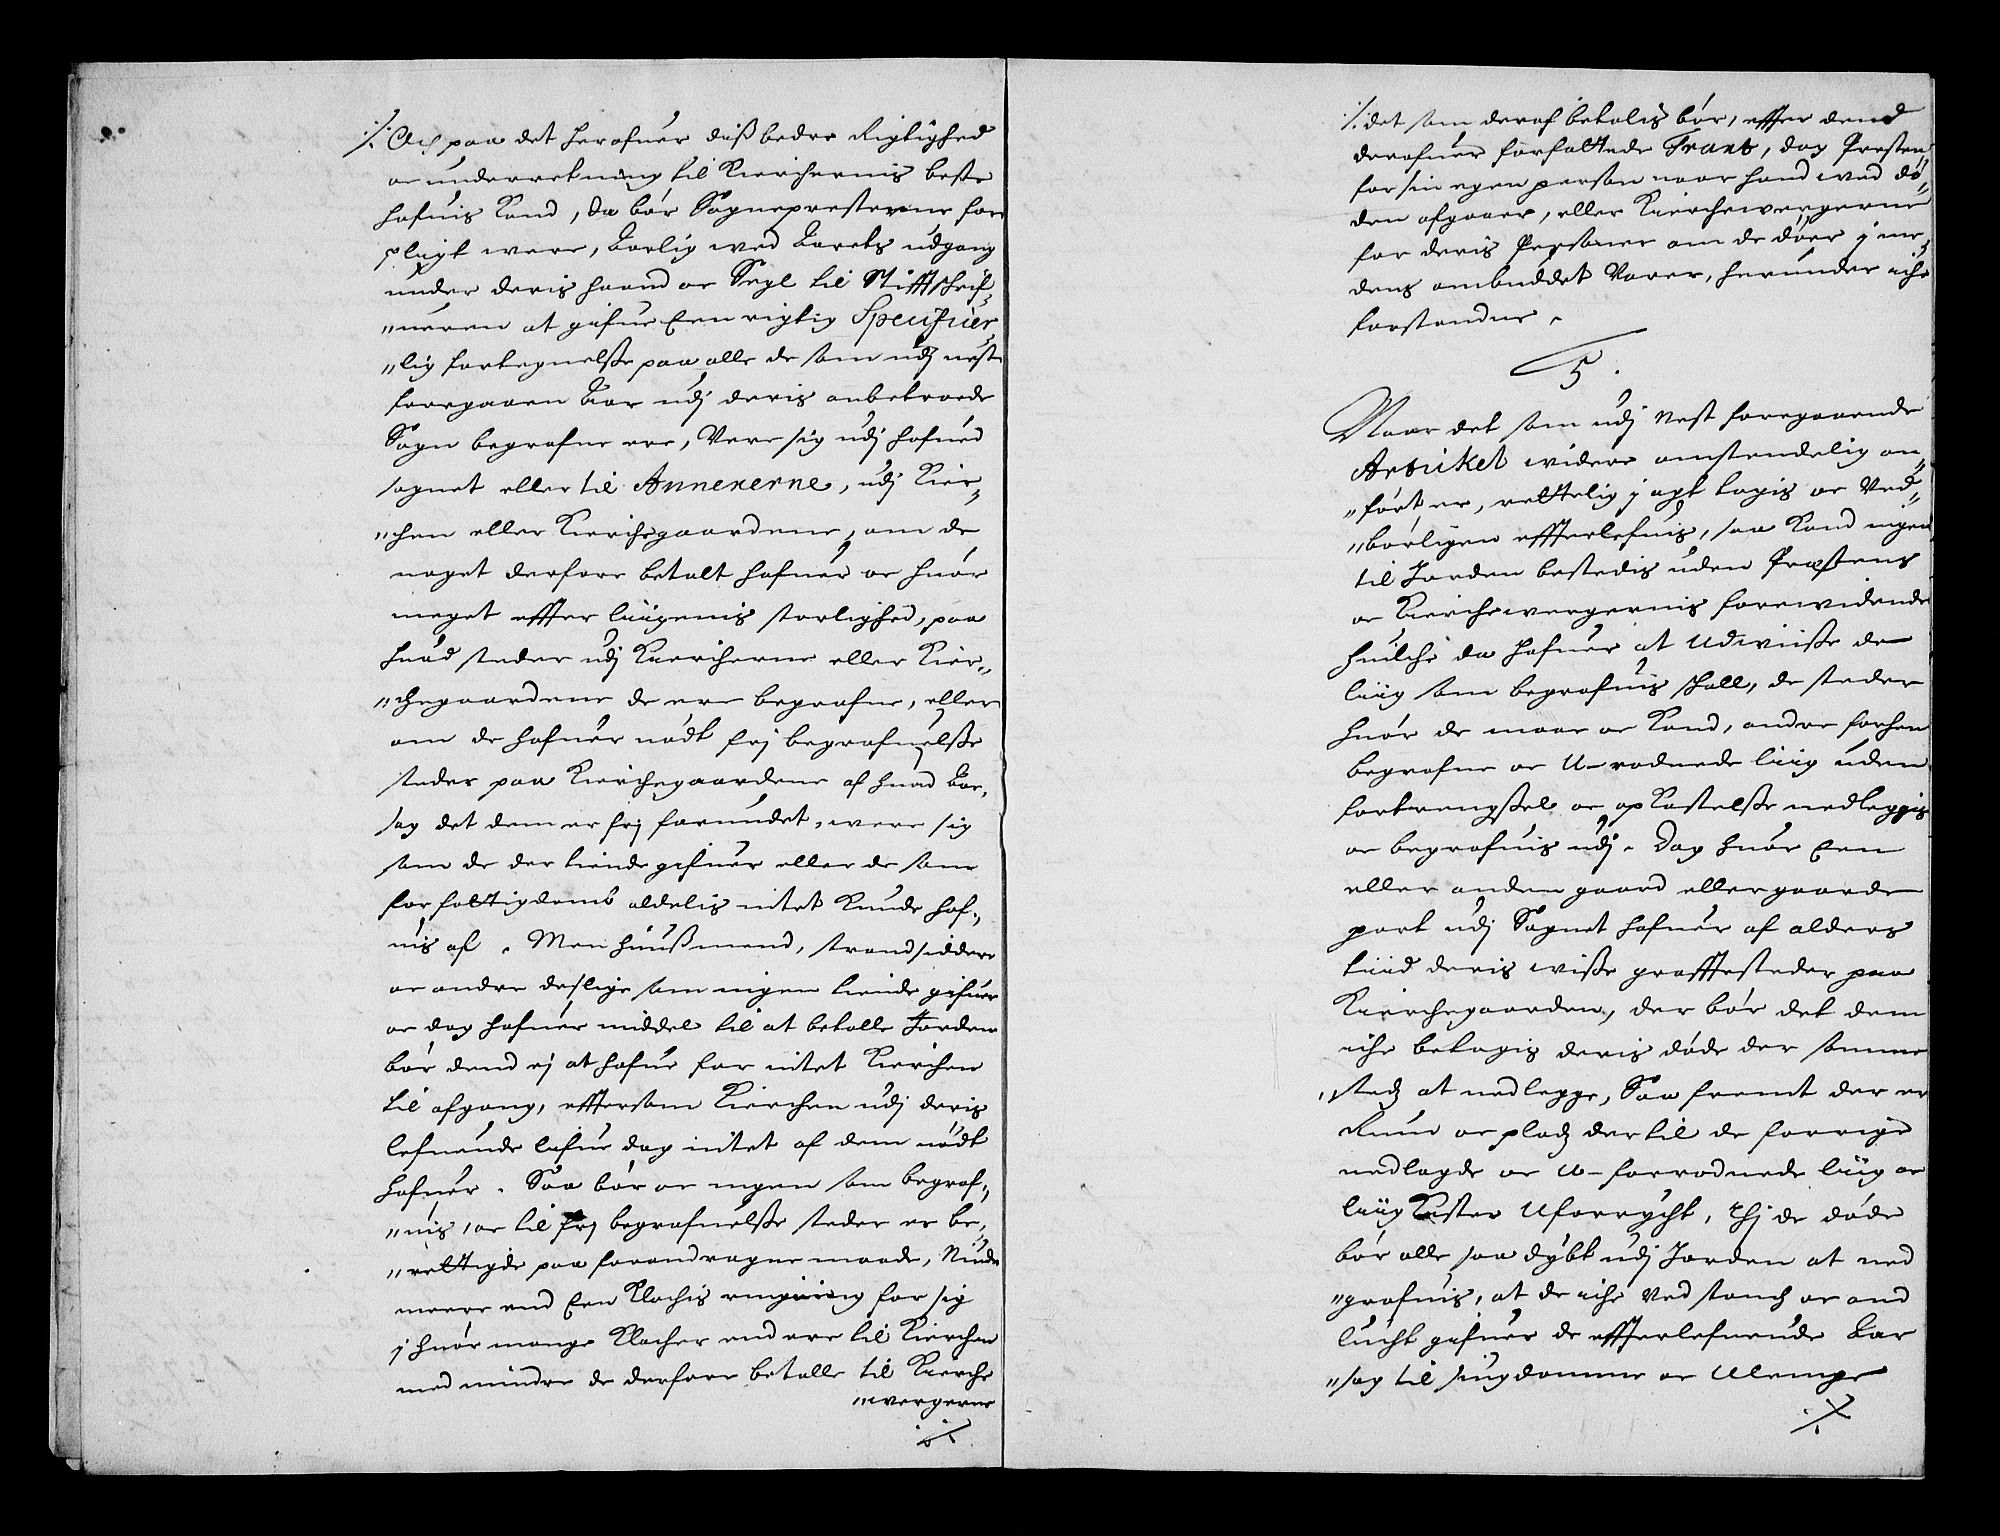 ./. Och paa det herofuer diß bedre Rigtighed
oc underretning til Kierchernis beste
hafuis Kand, da bør Sognepresterne for
pligt were, Aarlig wed Aarets udgang
under deris haand oc Segl til Stifftschrif„
„ueren at gifue Een rigtig Specificer
„lig fortegnelße paa alle de som udj nest
foregaaen Aar udj deris anbetroede
Sogn begrafne ere, Were sig udj hofued
sognet eller til Annexerne, udj Kier„
„chen eller Kierchegaardene, om de
noget derfore betalt hafuer oc huor
meget effter liigenis storlighed, paa
huad steder udj Kiercherne eller Kier„
„chegaardene de ere begrafne, eller
om de hafuer nødt frj begrafuelße
steder paa Kierchegaardene af huad Aar„
sag det dem er frj forundet, were sig
som de der tiende gifuer eller de som
for fattigdomb aldelis intet Kunde haf„
uis af. Men huußmend, strandsiddere
oc andre deslige som ingen tiende gifuer
oc dog hafuer middel til at betalle Jorden
bør dend ej at hafue for intet Kierchen
til afgang, effttersom Kierchen udj deris
lefuende lifue dog intet af dem nødt
hafuer. Saa bør oc ingen som begraf„
„uis, oc til frj begrafuelße steder er be„
„rettigde paa forandragne maade, Niude
meere end Een Klochis ringiing for sig
j huor mange Klocher end ere til Kierchen
med mindre de derfore betalle til Kierche
„wergerne
./.
./. det som deraf betalis bør, effter dend
derofuer forfattede Taxt, dog Presten
for sin egen person naar hand wed dø„
den afgaaer, eller Kierchewergerne
for deris Personer om de døer j me„
dens ombuddet Varer, herunder iche
forstandne.
5.
Naar det som udj Nest foregaaende
Articket widere omstendelig an„
„ført er, rettelig j agt tagis oc Ved„
„børligen effterlefuis, saa Kand ingen
til Jorden bestedis uden Præstens
oc Kierchewergernis forewidende
huilche da hafuer at Udwiiße de
liig som begrafuis schall, de steder
huor de maae oc Kand, andre forhen
begrafne oc U-rodnede liig uden
fortrengßel oc opKastelße nedleggis
oc begrafuis udj. Dog huor Een
eller anden gaard eller gaarde
part udj Sognet hafuer af alders
tiid deris wiße graffsteder paa
Kierchegaarden, der bør det dem
iche betagis deris døde der samme
steds at nedlegge, Saa fremt der er
Rum oc plads der til de forrige
nedlagde oc U-forrodnede liig oc
liigKister Uforrycht, thj de døde
bør alle saa dybt udj Jorden at ned
„grafuis, at de iche Ved stanch oc ond
lucht gifuer de effterlefuende Aar
„sag til siugdomme oc Ulempe
./.